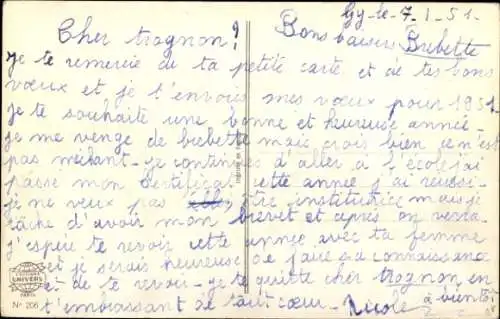 Gy-le-7-1-51-
Cher trognon!
Bons baisers Bubette
je te remercie de ta petite carte et de tes bons
vœux et je t'envois mes vœux pour 1951-
je te souhaite une bonne et heureuse année-
je me venge de bubette mais crois bien ce n'est
pas méchant- je continues d'aller à l'école j'ai
passé mon certificat cette année j'ai réussi-
je ne veux pas être institutrice mais je
tâche d'avoir mon brevet et après on verra-
j'espère te revoir cette année avec ta femme
et je serais heureuse de faire sa connaissance
et de te revoir- je te quitte cher trognon en
t'embrassant de tout cœur- Nicole à bientôt
UNIVERS
PARIS
No 206